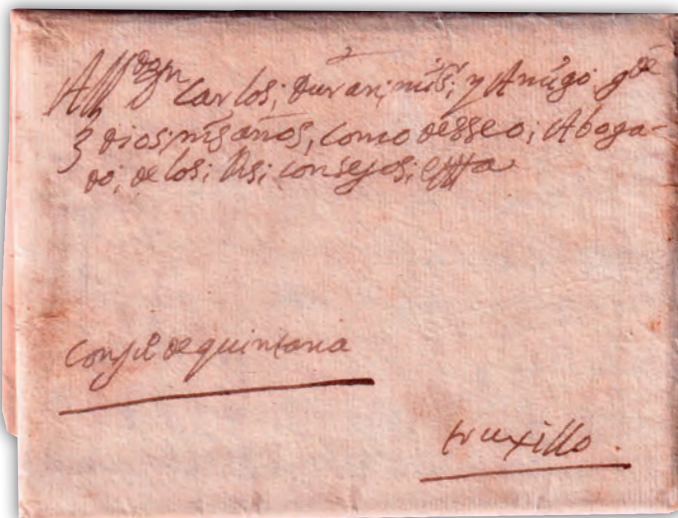 Al Sr Dn Carlos; Duran; mi Sr; y Amigo; gde
Dios; ms años, como desseo; Aboga-
do; de los; Rs; consejos; ettta
Consil de quintana
truxillo.